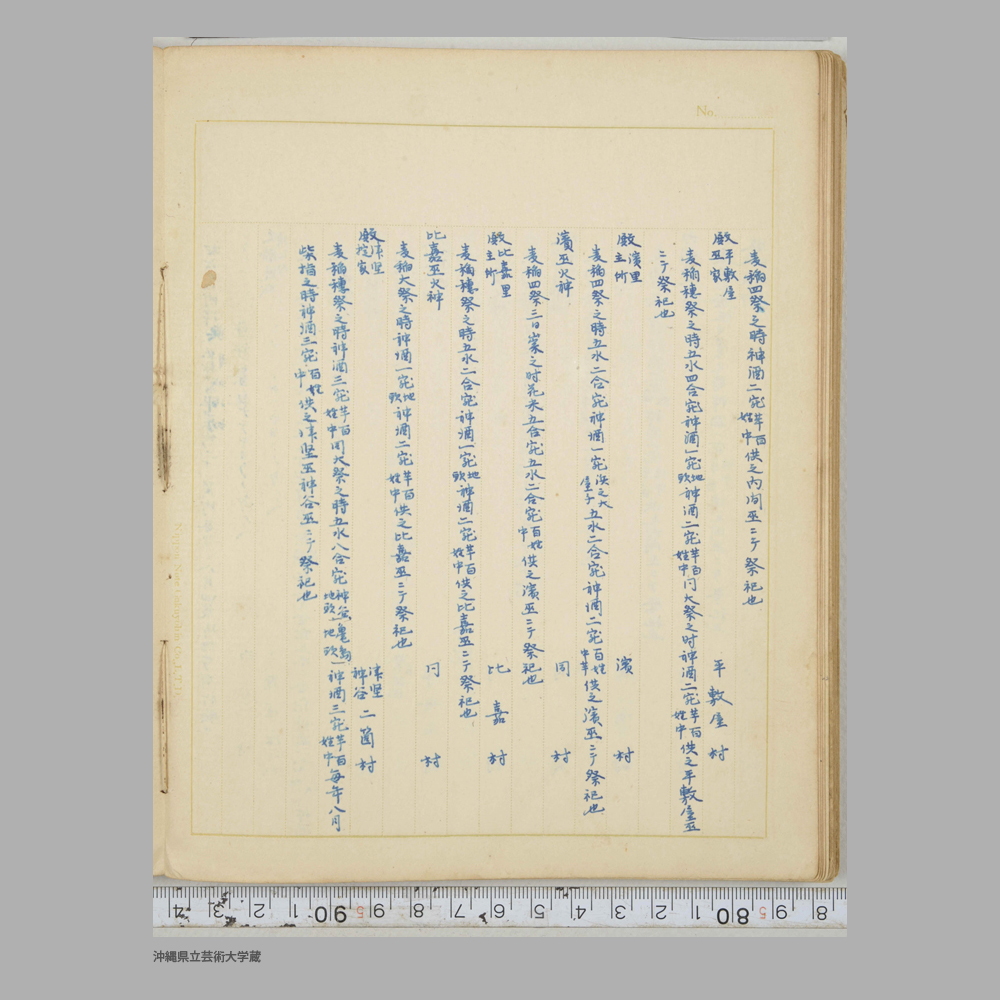 No.
麦稲四祭之時神酒二宛芋百姓中供之内間巫ニテ祭祀也
平敷屋巫家殿 平敷屋村
麦稲穂祭之時五水四合宛神酒一宛地頭神酒二宛芋百姓中同大祭之時神酒二宛芋百姓中供之平敷屋巫
ニテ祭祀也
濱里主所殿 濱村
麦稲四祭之時五水二合宛神酒一宛供之大屋子五水二合宛神酒二宛百姓中芋供之濱巫ニテ祭祀也
濱巫火神 同村
麦稲四祭三日崇之時花米五合宛五水二合宛百姓中供之濱巫ニテ祭祀也
比嘉里主所殿 比嘉村
麦稲穂祭之時五水二合宛神酒一宛地頭神酒二宛芋百姓中供之比嘉巫ニテ祭祀也
比嘉巫火神 同村
麦稲大祭之時神酒一宛地頭神酒二宛芋百姓中供之比嘉巫ニテ祭祀也
津堅掟家殿 津堅神谷二箇村
麦稲穂祭之時神酒三宛芋百姓中同大祭之時五水八合宛神酒三宛芋百姓中毎年八月
柴指之時神酒三宛百姓中供之津堅巫神谷巫ニテ祭祀也
4 3 2 1 90 9 5 8 7 6 5 4 3 2 1 80 9 5 8
沖縄県立芸術大学蔵